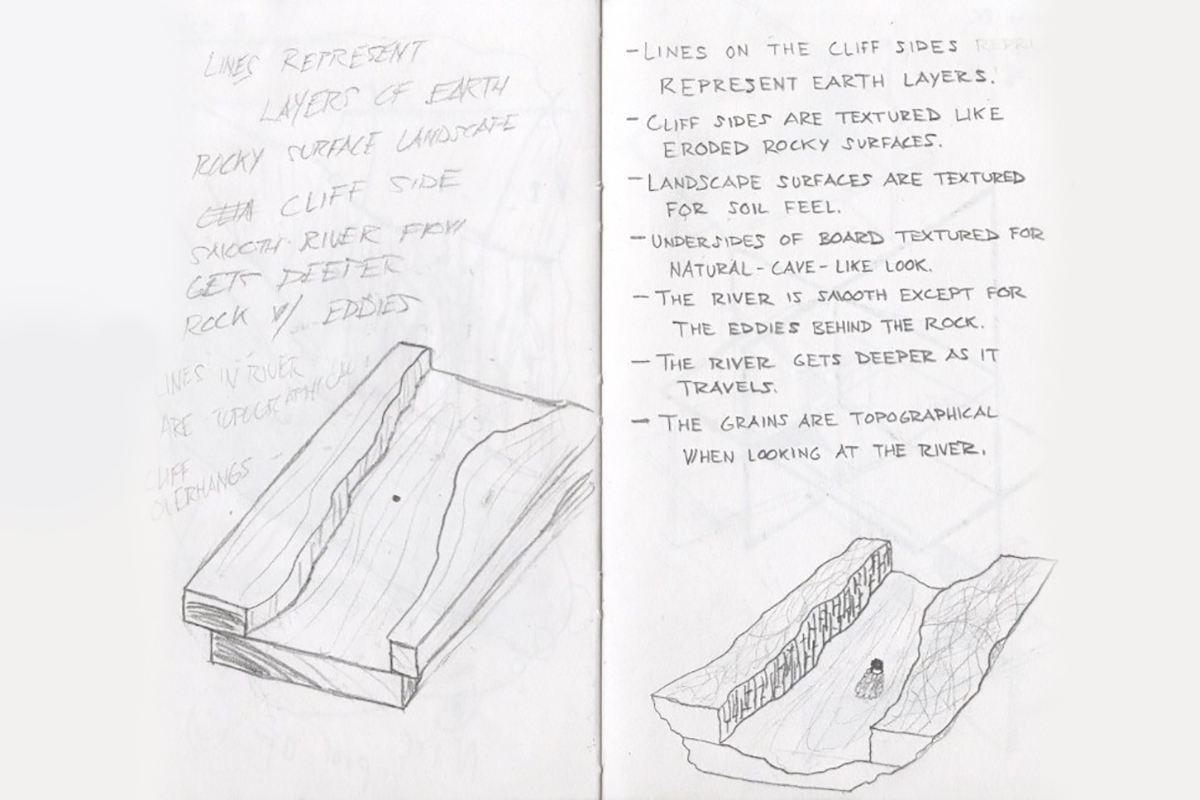 LINES REPRESENT
LAYERS OF EARTH
ROCKY SURFACE LANDSCAPE
CLIFF SIDE
SMOOTH RIVER FLOW
GETS DEEPER
ROCK W/ EDDIES
LINES IN RIVER
ARE TOPOGRAPHICAL
CLIFF
OVERHANGS -
- LINES ON THE CLIFF SIDES
REPRESENT EARTH LAYERS.
- CLIFF SIDES ARE TEXTURED LIKE
ERODED ROCKY SURFACES.
- LANDSCAPE SURFACES ARE TEXTURED
FOR SOIL FEEL.
- UNDERSIDES OF BOARD TEXTURED FOR
NATURAL-CAVE-LIKE LOOK.
- THE RIVER IS SMOOTH EXCEPT FOR
THE EDDIES BEHIND THE ROCK.
- THE RIVER GETS DEEPER AS IT
TRAVELS.
- THE GRAINS ARE TOPOGRAPHICAL
WHEN LOOKING AT THE RIVER.